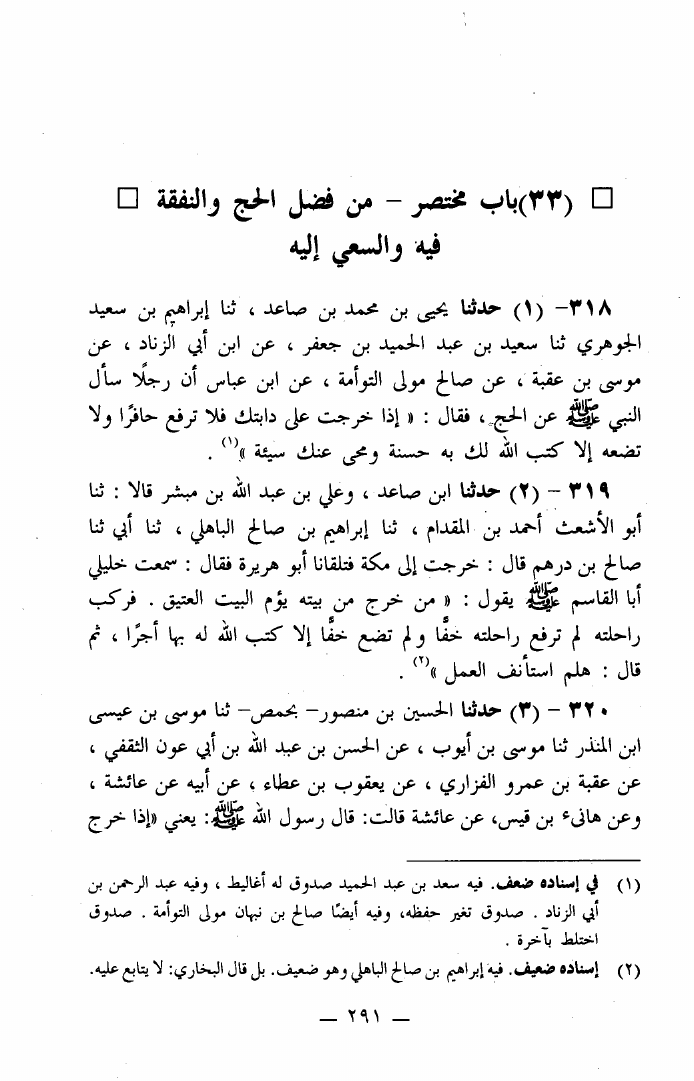 □ (٣٣) باب مختصر - من فضل الحج والنفقة □
فيه والسعي إليه
٣١٨- (١) حدثنا يحيى بن محمد بن صاعد ، ثنا إبراهيم بن سعيد
الجوهري ثنا سعيد بن عبد الحميد بن جعفر ، عن ابن أبي الزناد ، عن
موسى بن عقبة ، عن صالح مولى التوأمة ، عن ابن عباس أن رجلًا سأل
النبي ﷺ عن الحج ، فقال : « إذا خرجت على دابتك فلا ترفع حافرًا ولا
تضعه إلا كتب الله لك به حسنة ومحى عنك سيئة »(١) .
٣١٩ - (٢) حدثنا ابن صاعد ، وعلي بن عبد الله بن مبشر قالا : ثنا
أبو الأشعث أحمد بن المقدام ، ثنا إبراهيم بن صالح الباهلي ، ثنا أبي ثنا
صالح بن درهم قال : خرجت إلى مكة فتلقانا أبو هريرة فقال : سمعت خليلي
أبا القاسم ﷺ يقول : « من خرج من بيته يؤم البيت العتيق . فركب
راحلته لم ترفع راحلته خفًّا ولم تضع خفًّا إلا كتب الله له بها أجرًا ، ثم
قال : هلم استأنف العمل »(٢) .
٣٢٠ - (٣) حدثنا الحسين بن منصور - بحمص - ثنا موسى بن عيسى
ابن المنذر ثنا موسى بن أيوب ، عن الحسن بن عبد الله بن أبي عون الثقفي ،
عن عقبة بن عمرو الفزاري ، عن يعقوب بن عطاء ، عن أبيه عن عائشة ،
وعن هانىء بن قيس، عن عائشة قالت: قال رسول الله ﷺ: يعني «إذا خرج
(١) في إسناده ضعف. فيه سعد بن عبد الحميد صدوق له أغاليط ، وفيه عبد الرحمن بن
أبي الزناد . صدوق تغير حفظه، وفيه أيضًا صالح بن نبهان مولى التوأمة . صدوق
اختلط بآخرة .
(٢) إسناده ضعيف. فيه إبراهيم بن صالح الباهلي وهو ضعيف. بل قال البخاري: لا يتابع عليه.
— ٢٩١ —